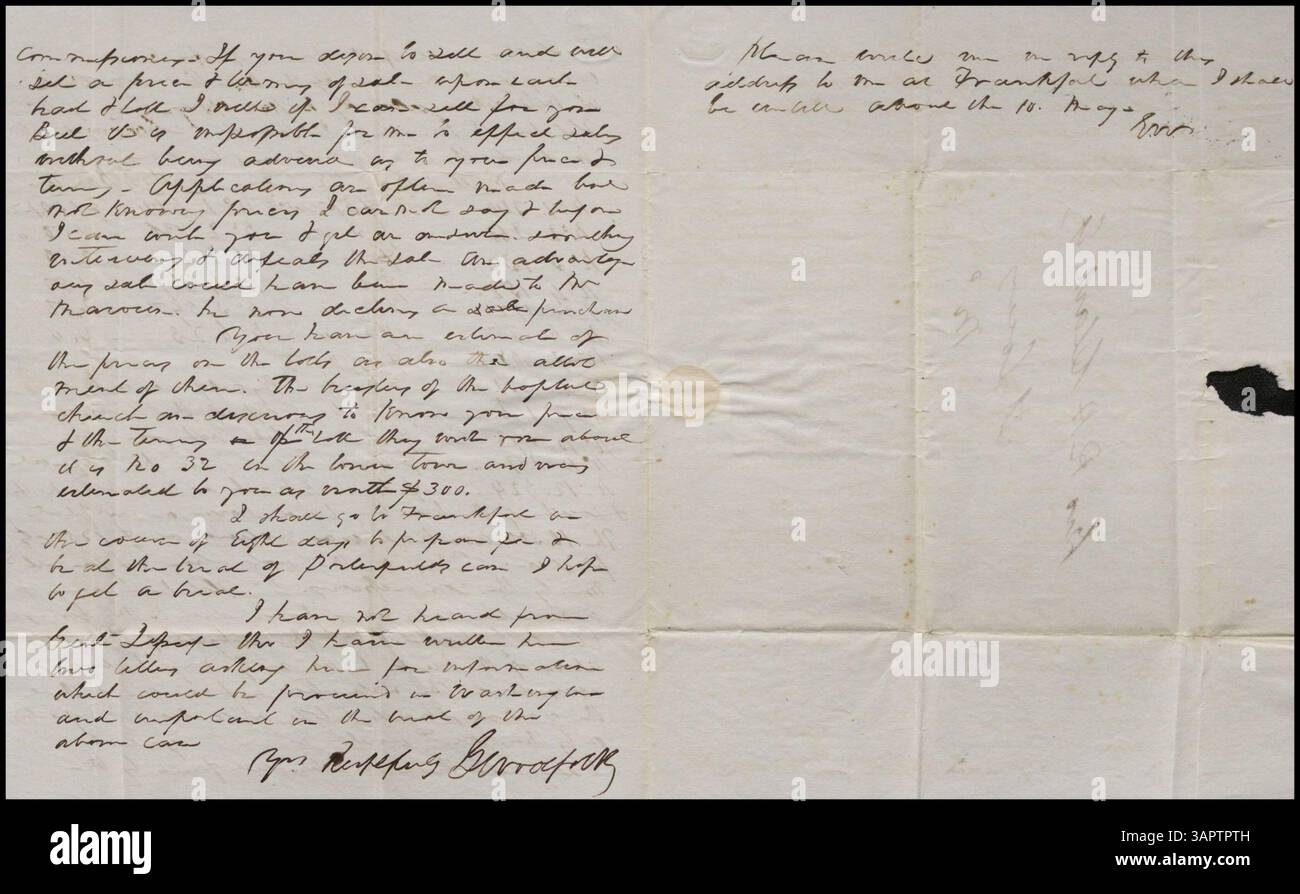 commissioners. If you desire to sell and will
set a price & terms of sale upon each
half & lott I will if I can sell for you
But it is impossible for me to effect sales
without being advised as to your price &
terms - Applications are often made but
not knowing prices I cannot say & before
I can write you & get an answer something
intervenes & defeats the sale an advantage
ous sale could have been made to Mr
he now declines a purchase
You have an estimate of
the prices on the lotts as also the allot
ment of them. The trustees of the baptist
church are desirous to know your price
& the terms lott they wrote you about
it is No 32 in the lower town and was
estimated to you as worth $300.
I shall go to Frankfort in
the course of Eight days to prepare for &
be at the trial of Porterfields case I hope
to get a trial.
I have not heard from
Genl Jessup tho I have written him
two letters asking him for information
which could be procured in Washington
and important in the trial of the
above case
Yrs Respectfully G Woodfolk
Please write me in reply to this
address to me at Frankfort where I shall
be untill about the 10. May.
alamy
alamy
a
Image ID: 3APTPTH
www.alamy.com